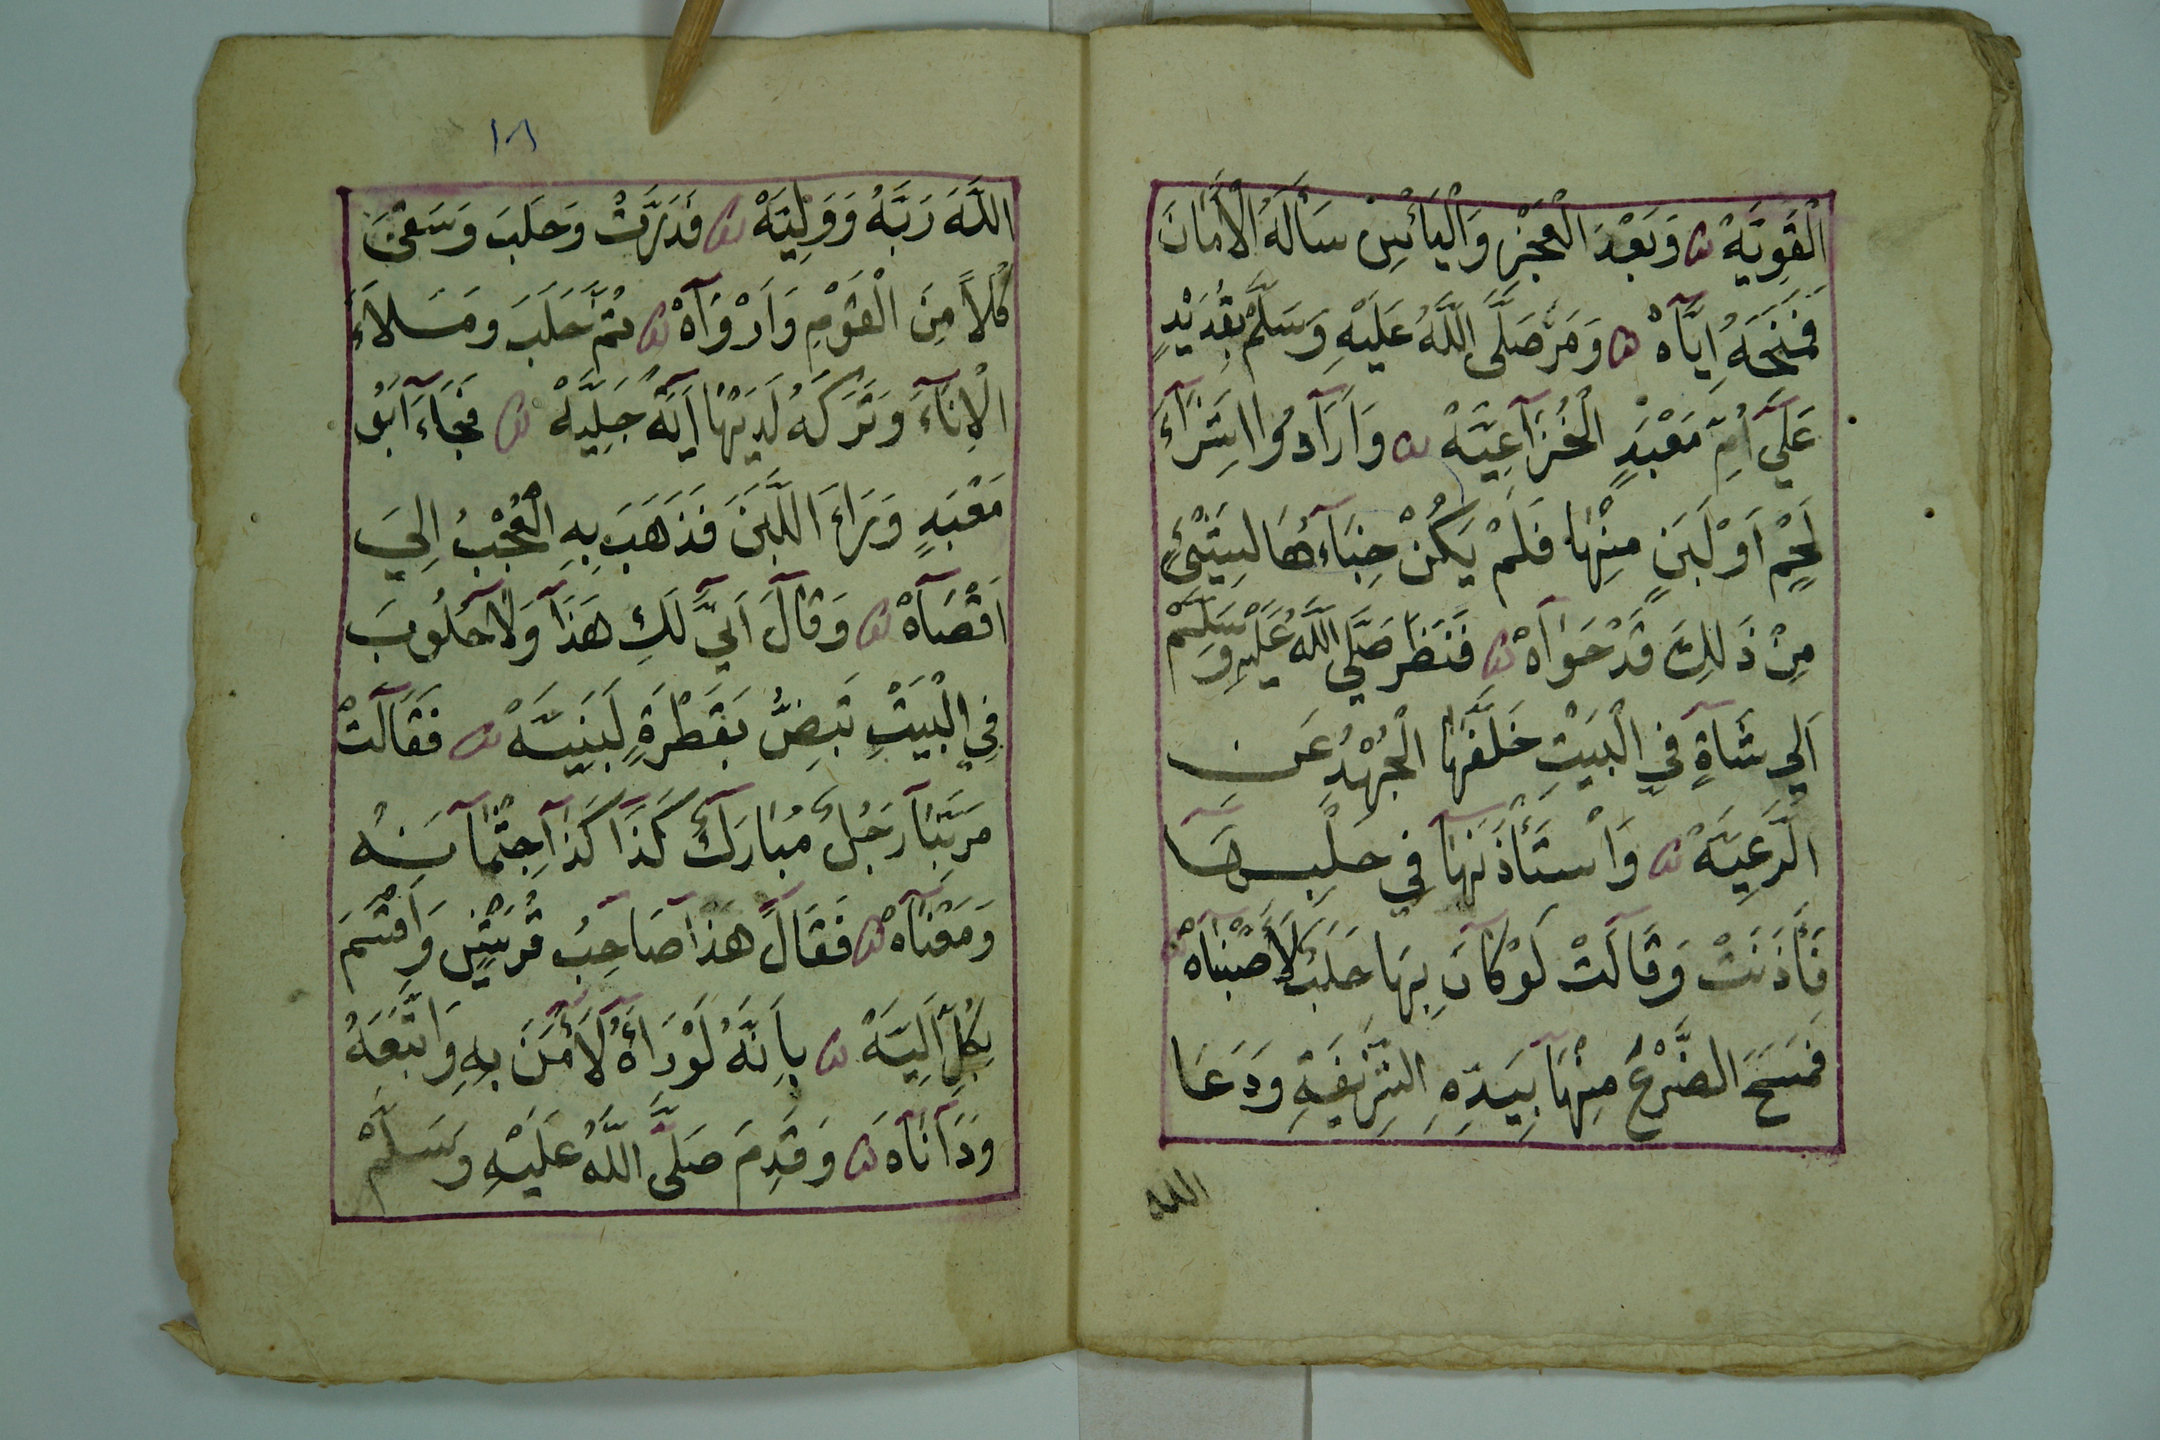 الْقَوِيَّهْ وَبَعْدَ الْعَجْزِ وَالْيَأْسِ سَأَلَهُ الْأَمَانَ
فَمَنَحَهُ اِيَّاهْ وَمَرَّ صَلَّى اللَّهُ عَلَيْهِ وَسَلَّمْ بِقُدَيْدٍ
عَلَي اُمِّ مَعْبَدٍ الْخُزَاعِيَّهْ وَاَرَادُوا اشِتْرَآءَ
لَحْمٍ اَوْ لَبَنٍ مِنْهَا فَلَمْ يَكُنْ خِبَاءُهَا لِشَيْئٍ
مِنْ ذَلِكَ قَدْ حَوَاهْ فَنَظَرَ صَلَّي اللَّهُ عَلَيْهِ وَسَلَّمْ
اَلِي شَاةٍ فِي الْبَيْتِ خَلَّفَهَا الْجُهْدُ عَنِ
الرَّعِيَّهْ وَاسْتَأْذَنَهَا فِي حَلْبِهَا
فَأَذَنَتْ وَقَالَتْ لَوْ كَانَ بِهَا حَلَبٌ لَأَصَبْنَاهْ
فَمَسَحَ الضَّرْعَ مِنْهَا بِيَدِهِ الشَّرِيفَةِ وَدَعَا
الله
١٨
اللَّهَ رَبَّهُ وَوَلِيَّهْ فَدَرَّتْ وَحَلَبَ وَسَقَىَ
كُلاًّ مِنَ الْقَوْمِ وَاَرْوَاهْ ثُمَّ حَلَبَ وَمَلَاَءَ
الْاِنَآءَ وَتَرَكَهُ لَدَيْهَا اَيَةً جَلِيَّهْ فَجَآءَ اَبُو
مَعْبَدٍ وَرَاءَ اللَّبَنَ فَذَهَبَ بِهِ الْعُجْبُ اِلِيَ
اَقْصَاهْ وَقَالَ اَنَّي لَكِ هَذَا وَلَا حَلُوبَ
فِي الْبَيْتِ تَبِضُّ بِقَطْرَةٍ لَبَنِيَّهْ فَقَالَتْ
مَرَّبِنَا رَجُلٌ مُبَارَكٌ كَذَا كَذَا جِثْمَانُهُ
وَمَعْنَاهْ فَقَالَ هَذَا صَاحِبُ قُرَيْشٍ وَاَقْسَمَ
بِكُلِّ اَلِيَّهْ بِاَنَّهُ لَوْ رَاَهُ لَأَمَنَ بِهِ وَاتَّبَعَهُ
وَدَانَاهْ وَقَدِمَ صَلَّى اللَّهُ عَلَيْهِ وَسَلَّمْ